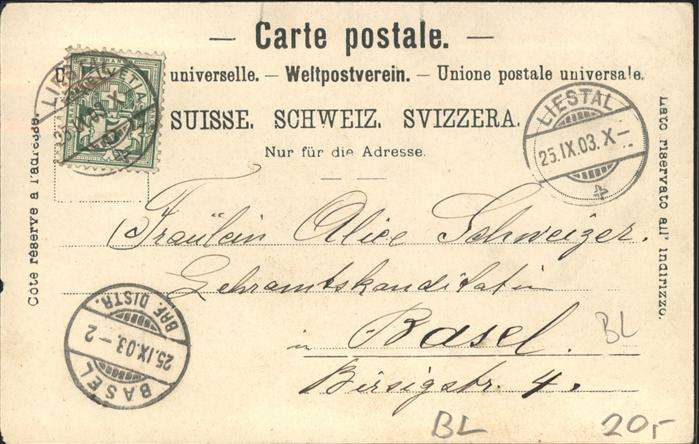 — Carte postale. —
universelle. — Weltpostverein. — Unione postale universale.
SUISSE. SCHWEIZ. SVIZZERA.
Nur für die Adresse.
Côté réservé à l'adresse.
Lato riservato all' indirizzo.
HELVETIA
LIESTAL
25.IX.03.X—
Fräulein Alice Schweizer.
Lehramtskanditatin
in Basel.
Birsigstr. 4.
BASEL
25.IX.03.—2
BRF. DISTR.
BL
BL
20,-